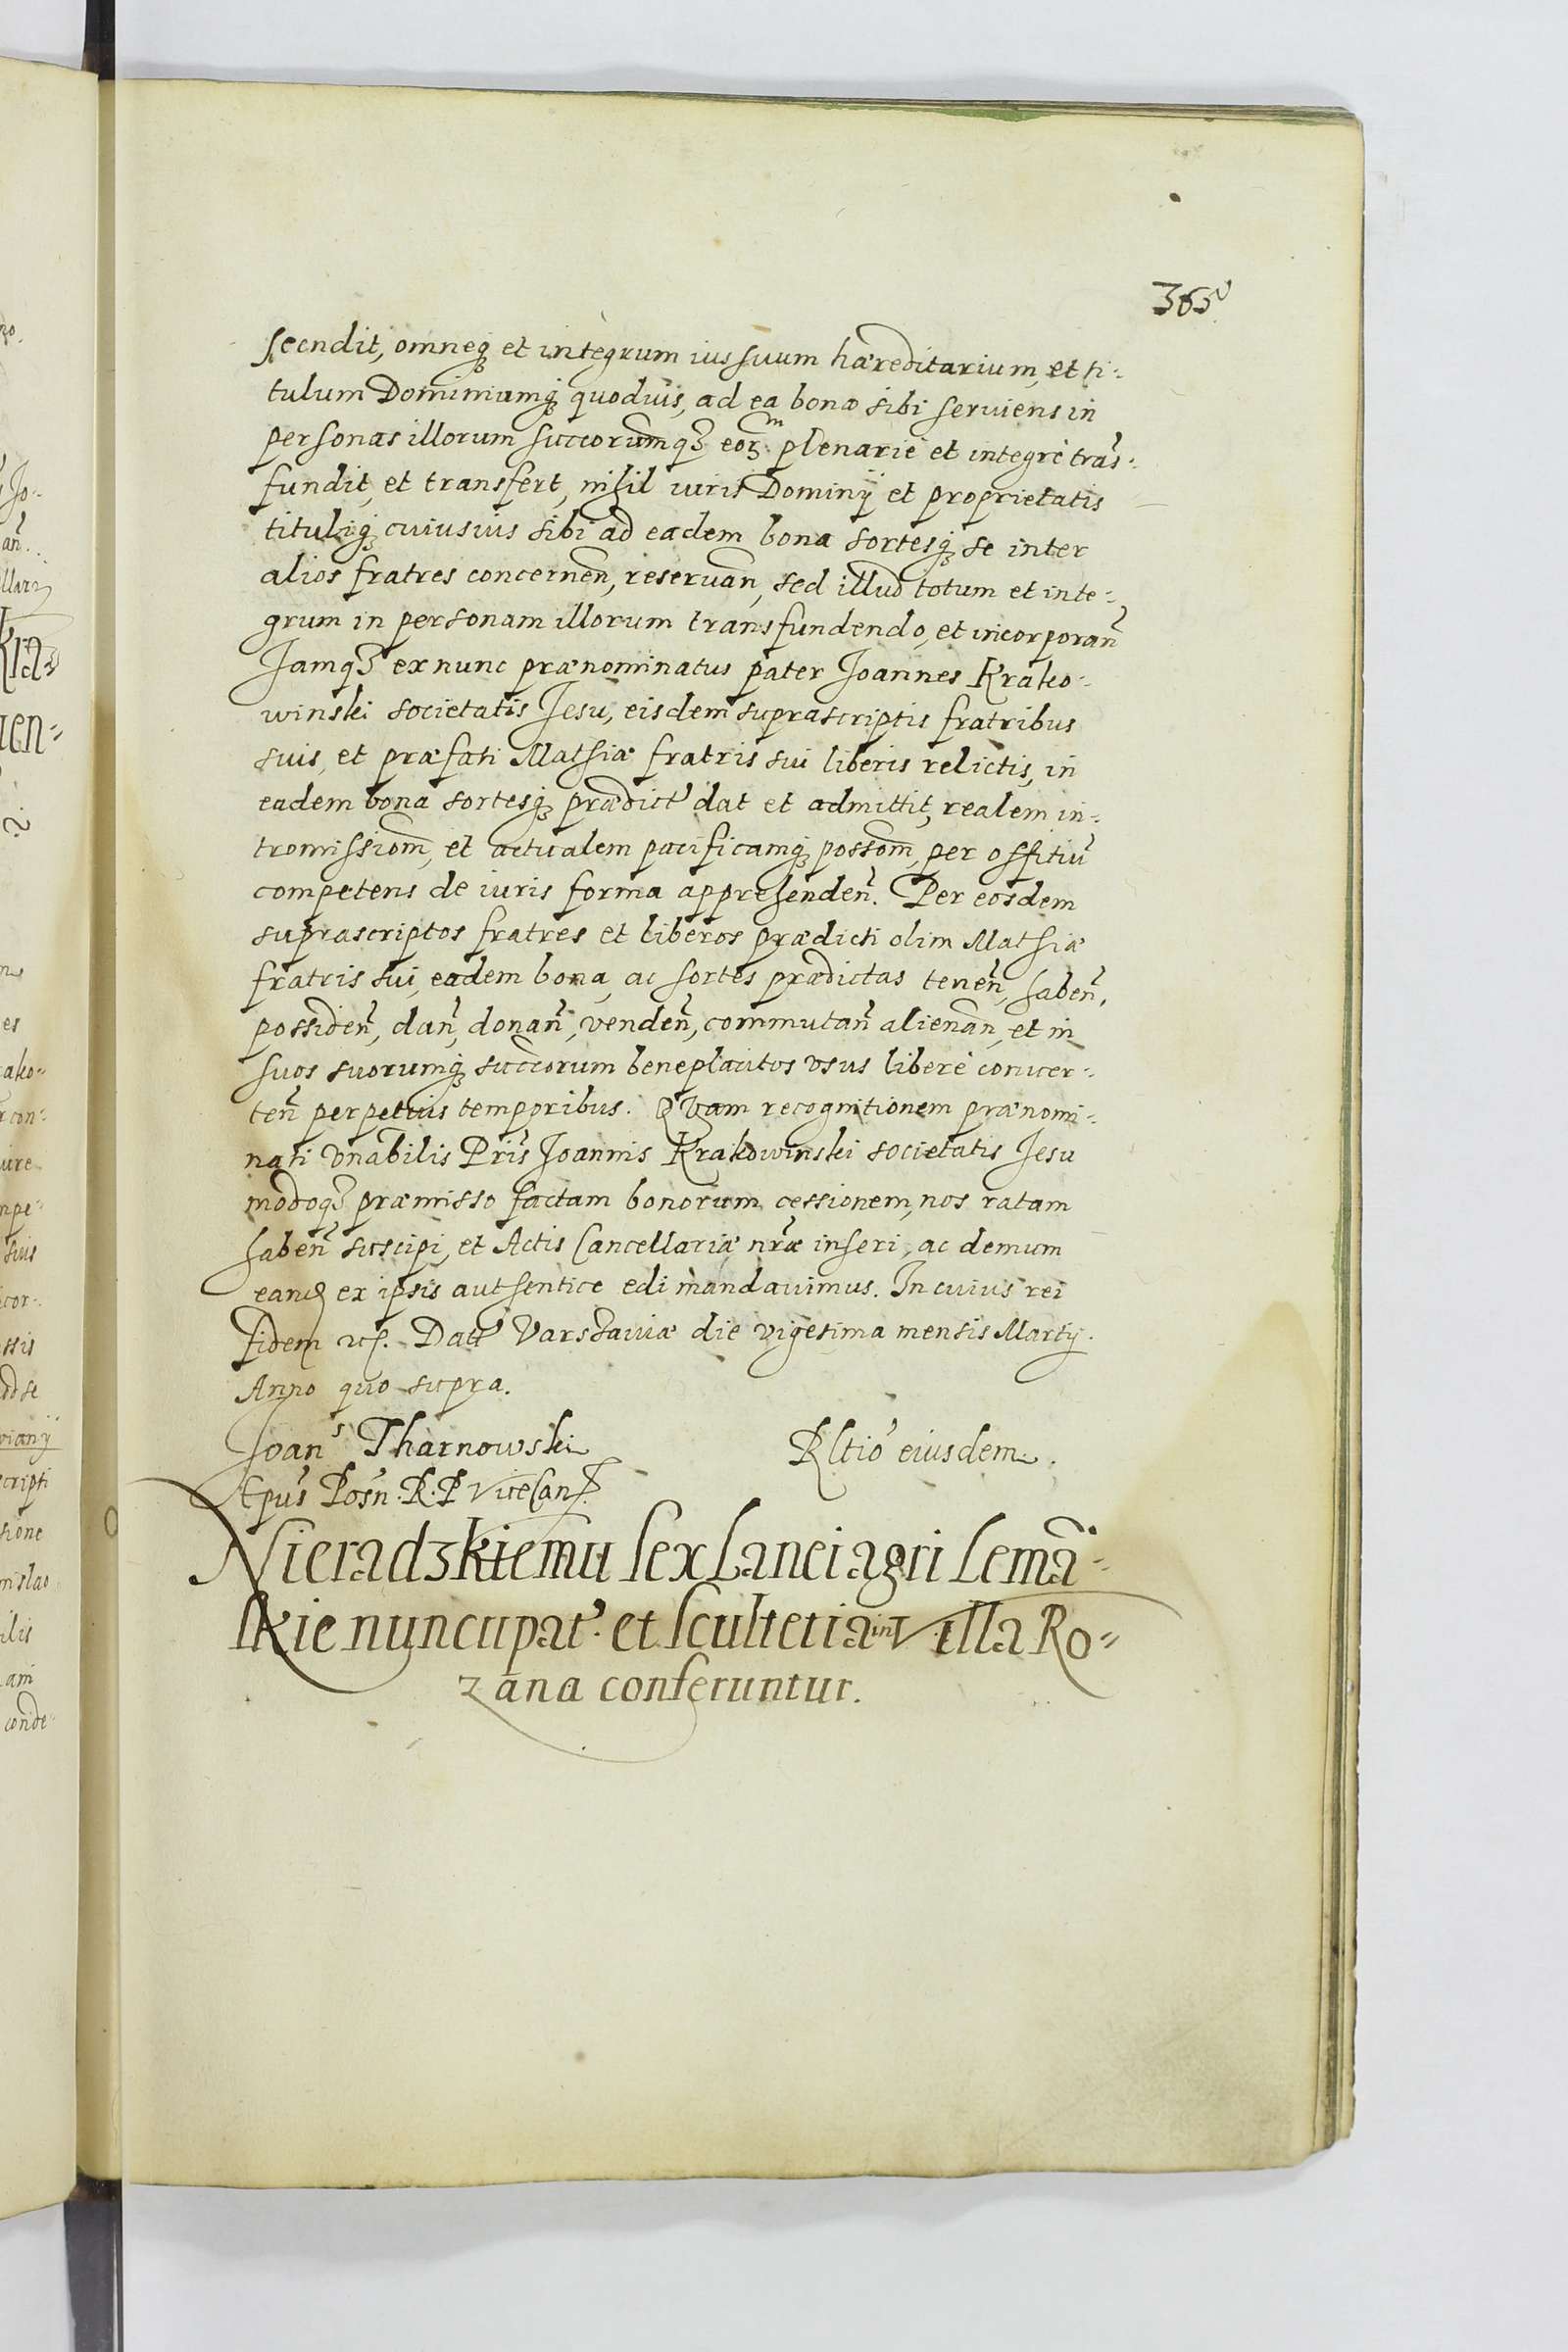 365
scendit, omneq₃ et integrum ius suum hæreditarium, et ti-
tulum Dominiumq₃ quoduis, ad ea bona sibi seruiens in
personas illorum succorumq₃ eorm plenariè et integrè trãs-
fundit, et transfert, nihil iuris Dominÿ et proprietatis
tituliq₃ cuiusuis sibi ad eadem bona sortesq₃ se inter
alios fratres concernen̄, reseruan̄, sed illud totum et inte-
grum in personam illorum transfundendo, et incorporan̄
Jamq₃ ex nunc prænominatus pater Joannes Krako-
winski societatis Jesu, eisdem suprascriptis fratribus
suis, et præfati Mathiæ fratris sui liberis relictis, in
eadem bona sortesq₃ prædict' dat et admittit, realem in-
tromissiom̄, et actualem pacificamq₃ possom̄, per offitiũ
competens de iuris forma apprehenden̄. Per eosdem
suprascriptos fratres et liberos prædicti olim Mathiæ
fratris sui, eadem bona, ac sortes prædictas tenen̄, haben̄,
possiden̄, dan̄, donan̄, venden̄, commutan̄ alienan̄, et in
suos suorumq₃ succorum beneplacitos vsus liberè conuer-
ten̄ perpetuis temporibus. Quam recognitionem prænomi-
nati Vnabilis Pris̄ Joannis Krakowinski societatis Jesu
modoq₃ præmisso factam bonorum cessionem, nos ratam
haben̄ suscipi, et Actis Cancellariæ nr̄æ inseri, ac demum
eand̄ ex ipsis authentice edi mandauimus. In cuius rei
fidem etc. Datt' Varschauiæ die vigesima mensis Martÿ.
Anno quo supra.
Joans Tharnowski
Rltio' eiusdem.
Epus̄ Posn̄. R. P ViceCan̄.
Nieradzkiemu sex Lanei agri Lemã-
skie nuncupat'. et scultetia in Villa Ro-
zana conferuntur.